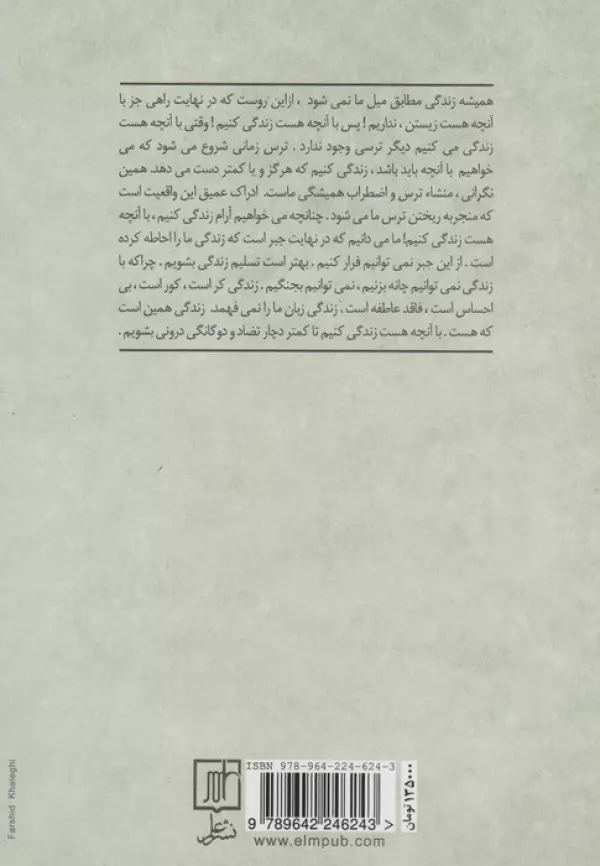 همیشه زندگی مطابق میل ما نمی شود ، ازاین روست که در نهایت راهی جز با
آنچه هست زیستن ، نداریم ! پس با آنچه هست زندگی کنیم ! وقتی با آنچه هست
زندگی می کنیم دیگر ترسی وجود ندارد . ترس زمانی شروع می شود که می
خواهیم با آنچه باید باشد ، زندگی کنیم که هرگز و یا کمتر دست می دهد. همین
نگرانی ، منشاء ترس و اضطراب همیشگی ماست. ادراک عمیق این واقعیت است
که منجربه ریختن ترس ما می شود . چنانچه می خواهیم آرام زندگی کنیم ، با آنچه
هست زندگی کنیم! ما می دانیم که در نهایت جبر است که زندگی ما را احاطه کرده
است . از این جبر نمی توانیم فرار کنیم . بهتر است تسلیم زندگی بشویم . چراکه با
زندگی نمی توانیم چانه بزنیم ، نمی توانیم بجنگیم . زندگی کر است ، کور است ، بی
احساس است ، فاقد عاطفه است . زندگی زبان ما را نمی فهمد. زندگی همین است
که هست . با آنچه هست زندگی کنیم تا کمتر دچار تضاد و دوگانگی درونی بشویم .
ISBN 978-964-224-624-3
9 789642 246243 >
۱۳۵۰۰۰ تومان
نشر علم
www.elmpub.com
Farshid Khaleghi